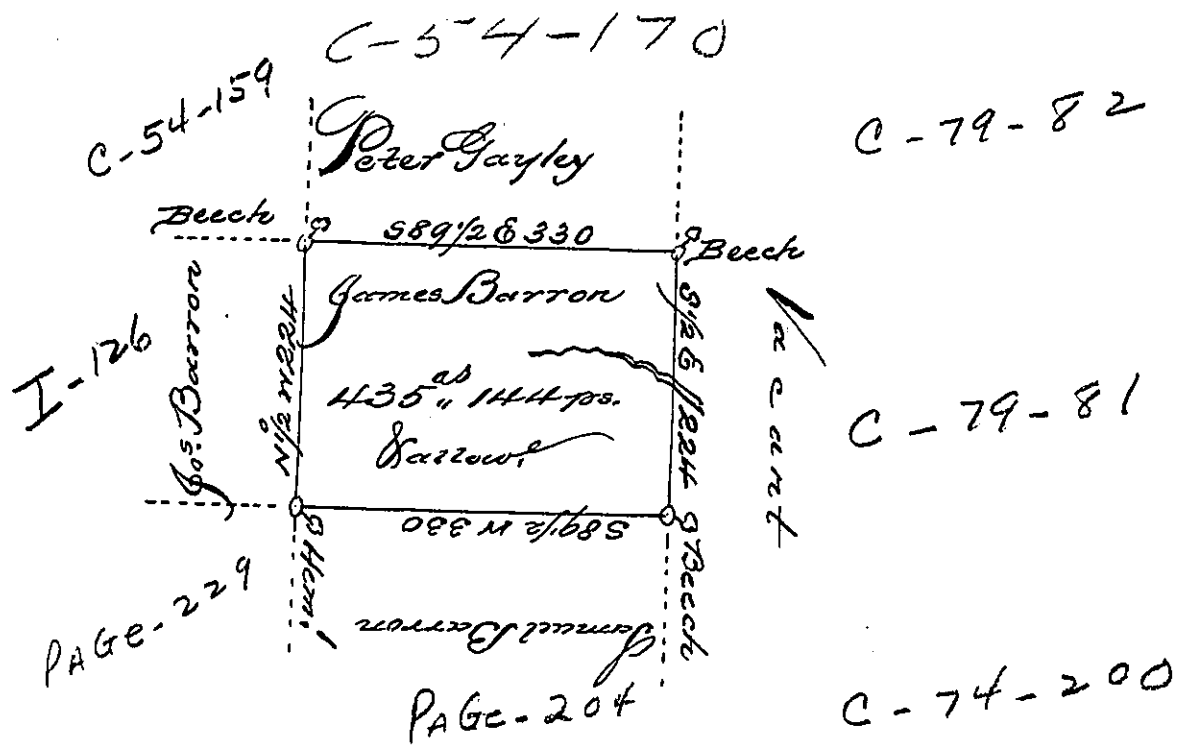 C-54-170
C-54-159
C-79-82
Peter Gayley
Beech
S89 1/2 E 330
Beech
James Barron
N 1/2 W 224
S 1/2 E 224
Jos. Barron
I-126
435 as 144 ps.
Vacant
C-79-81
S89 1/2 W 330
Hem.
Beech
Samuel Barron
PAGE-229
PAGE-204
C-74-200